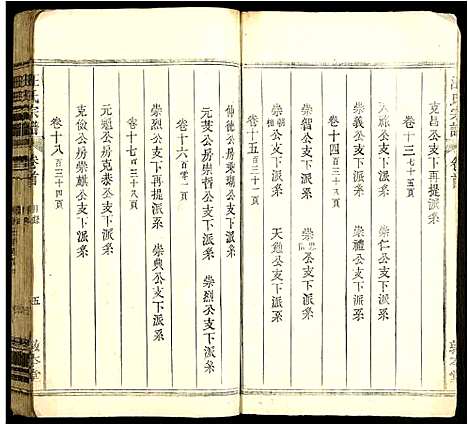 汪氏宗譜 卷首
敦本堂
克昌公支下再提派系
卷十三 七十五頁
崇義公支下派系 崇仁公支下派系
崇禮公支下派系
卷十四 百三十頁
崇智公支下派系
崇朝公支下派系 天德公支下派系
卷十五 百三十一頁
伸德公房秉瑚公支下派系
卷十六 百零一頁
元叟公房崇哲公支下派系 崇烈公支下派系
崇烈公支下再提派系 崇典公支下派系
卷十七 百三十八頁
元德公房克泰公支下派系
克儉公房崇麒公支下派系
卷十八 百三十四頁
汪氏宗譜 卷首 五 敦本堂